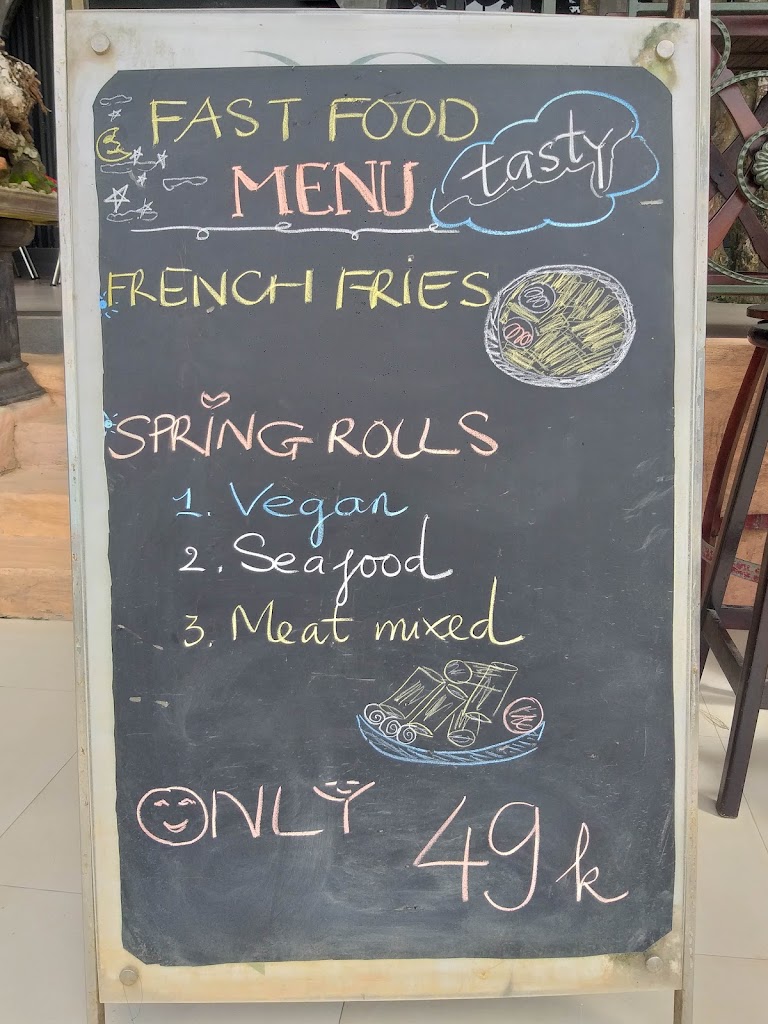 FAST FOOD
MENU tasty
FRENCH FRIES
SPRING ROLLS
1. Vegan
2. Seafood
3. Meat mixed
ONLY 49k